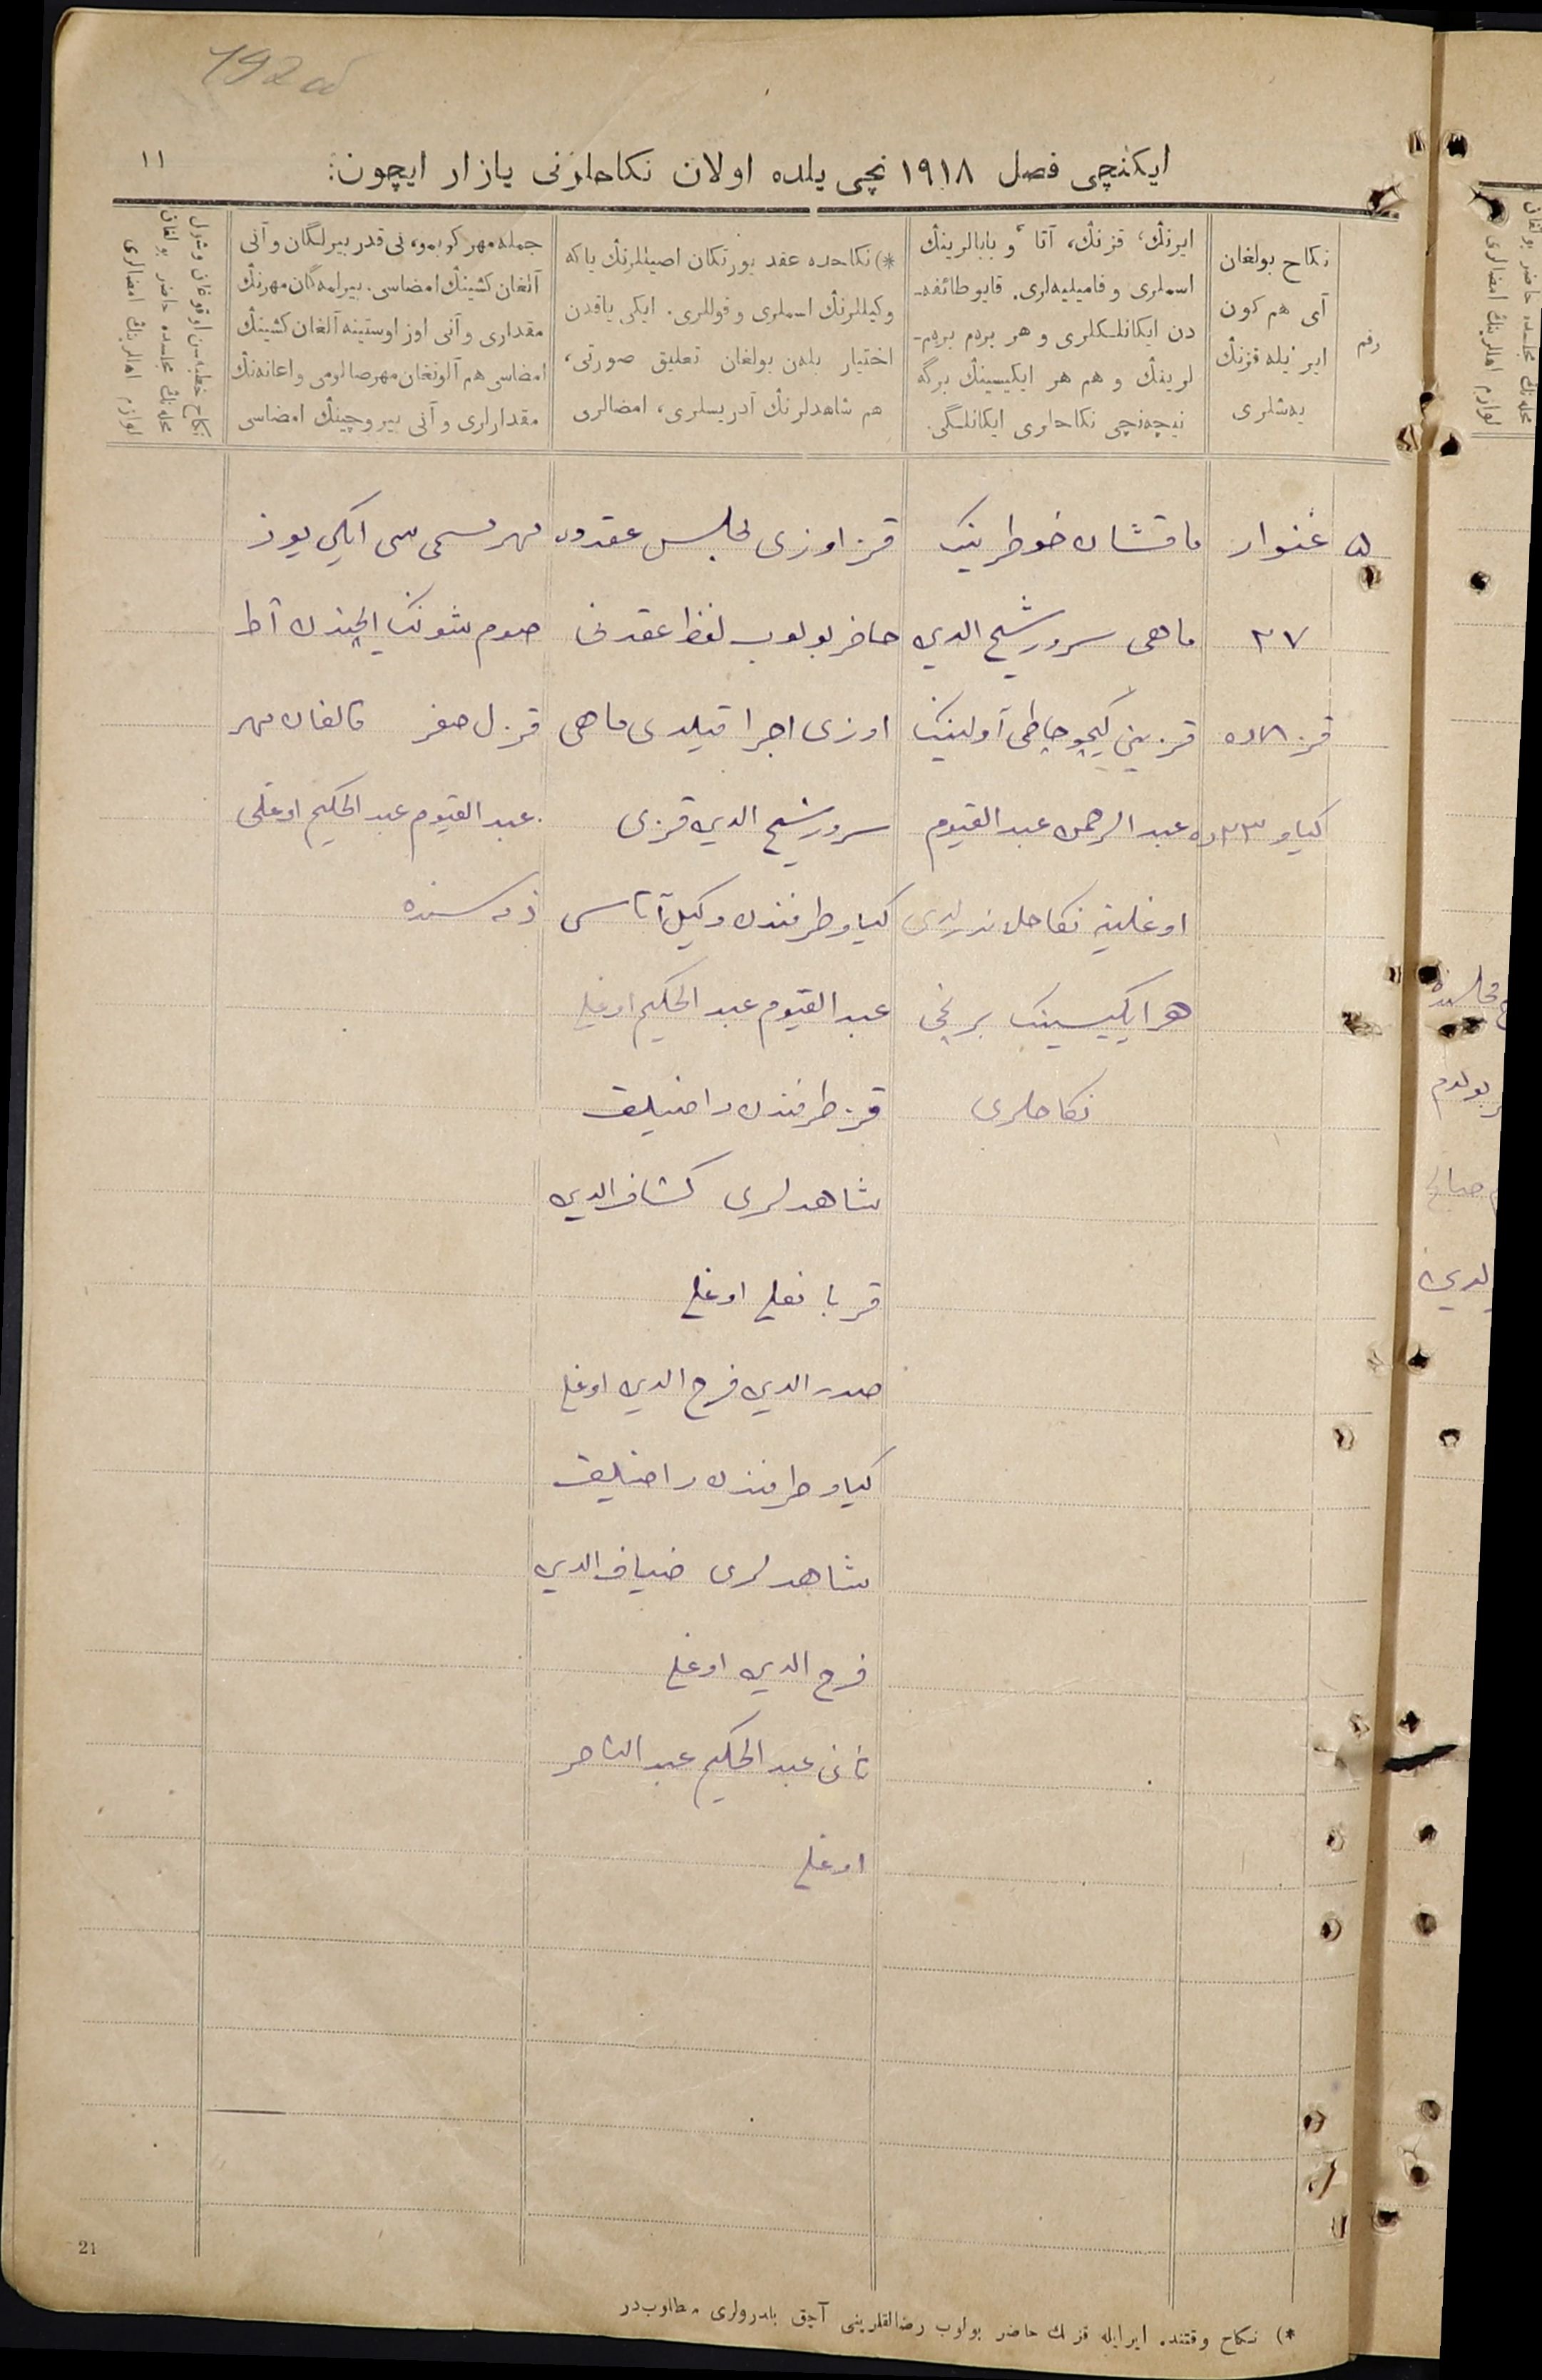 192 об
١١
ايكنچی فصل ١٩١٨ نچی يلده اولان نكاحلرنی يازار ايچون:
رقم
نكاح بولغان
آی هم كون
ایر ئیله قزنڭ
یەشلری
ایرنڭ، قزنڭ، آتا و بابالرینڭ
اسملری و فامیلیەلری. قایو طائفه-
دن ایكانلكلری و هر بردم بردم-
لرینڭ و هم هر ایكیسینڭ برگه
نیچەنچی نكاحلری ایكانلگی.
*) نكاحده عقد یورتكان اصیللرنڭ یاكه
وكیللرنڭ اسملری و قوللری. ایكی یاقدن
اختیار بلەن بولغان تعلیق صورتی،
هم شاهدلرنڭ آدریسلری، امضالری
جمله مهر كوبمو، نی قدر بیرلگان و آنی
آلغان كشینڭ امضاسی. بیرلمەگان مهرنڭ
مقداری و آنی اوز اوستینه آلغان كشینڭ
امضاسی هم آلونغان مهر صالومی و اعانەنڭ
مقدارلری و آنی بیروچینڭ امضاسی
نكاح خطبەسن اوقوغان و شول
محلەنڭ مجلسده حاضر بولغان
لوازم اهلرینڭ امضالری
٥
غنوار
٢٧
قز ١٨ ده
كیاو ٢٣ ده
ماقشان خوطرینڭ
ماهی سرور شیخ الدین
قزینی كیچو چاطی آولینڭ
عبد الرحمن عبد القیوم
اوغلینه نكاحلاندرلدی
هر ایكیسینڭ برنچی
نكاحلری
قز اوزی مجلس عقدده
حاضر بولوب لفظ عقدنی
اوزی اجرا قیلدی ماهی
سرور شیخ الدین قزی
كیاو طرفندن وكیل آتاسی
عبد القیوم عبد الحكیم اوغلی
قز طرفندن راضیلق
شاهدلری كشاف الدین
قربانعلی اوغلی
صدر الدین فرح الدین اوغلی
كیاو طرفندن راضیلق
شاهدلری ضیاف الدین
فرح الدین اوغلی
ثانی عبد الحكیم عبد الناصر
اوغلی
مهر مسمی سی ایكی یوز
صوم شونڭ ایچندن آط
قزل صغر قالغان مهر
عبد القیوم عبد الحكیم اوغلی
ذمەسنده
21
*) نكاح وقتنده ایر ایله قزنڭ حاضر بولوب رضالقلرینی آچق بلدرولری مطلوبدر